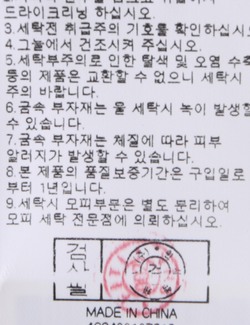 드라이크리닝 하십시오.
3.세탁전 취급주의 기호를 확인하십시
4.그늘에서 건조시켜 주십시오.
5.세탁부주의로 인한 탈색 및 오염 수축
등의 제품은 교환할 수 없으니 세탁시
주의 바랍니다.
6.금속 부자재는 물 세탁시 녹이 발생할
수 있습니다.
7.금속 부자재는 체질에 따라 피부
알러지가 발생할 수 있습니다.
8.본 제품의 품질보증기간은 구입일로
부터 1년입니다.
9.세탁시 모피부분은 별도 분리하여
모피 세탁 전문점에 의뢰하십시오.
검사필
MADE IN CHINA